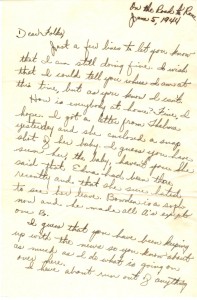 On the Road to Rome
June 5, 1944
Dear Folks,
Just a few lines to let you know
that I am still doing fine. I wish
that I could tell you where I am at
this time, but as you know I can't.
How is everybody at home? Fine, I
hope. I got a letter from Thelma
yesterday and she enclosed a snap
shot of her baby. I guess you have
seen her, the baby, haven't you. She
said that Edna had been there
recently and that she sure hated
to see her leave. is a Sgt.
now and he made all A's except
one B.
I guess that you have been keeping
up with the news so you know about
as much as I do what is going on
over here.
I have about run out of anything